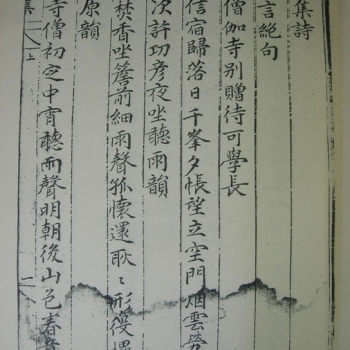 集詩
言絶句
僧伽寺別贈待可學長
信宿歸落日千峯夕悵望立空門烟雲
次許功彦夜坐聽雨韻
焚香坐簷前細雨聲孤懷還耿〻形役
原韻
寺僧初定中宵聽雨聲明朝後山色春